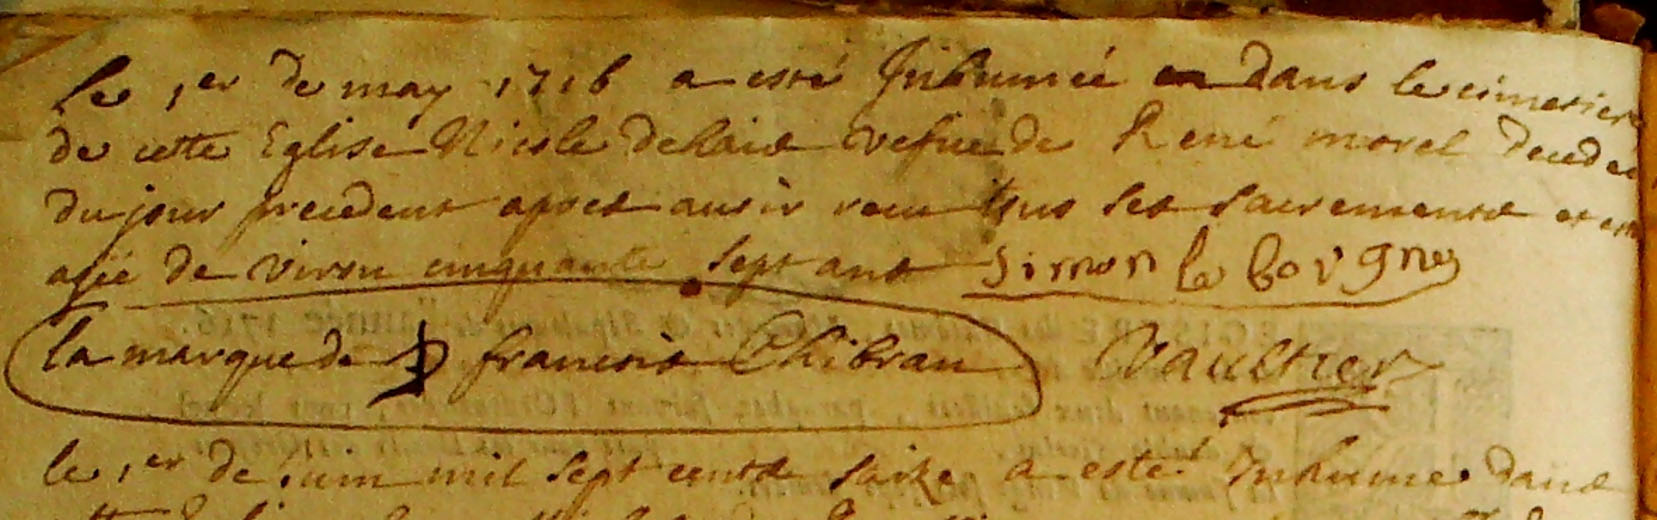 le 1er de may 1716 a esté Inhumée en dans le cimetier
de cette Eglise Nicole Delaie vefue de René morel decedée
du jour precedent apres auoir receu tous ses sacrements et
agée de viron cinquante sept ans Simon le bovgne
la marque de francois Chibran Vaultier
le 1er de juin mil sept cents saize a esté Inhumé dans